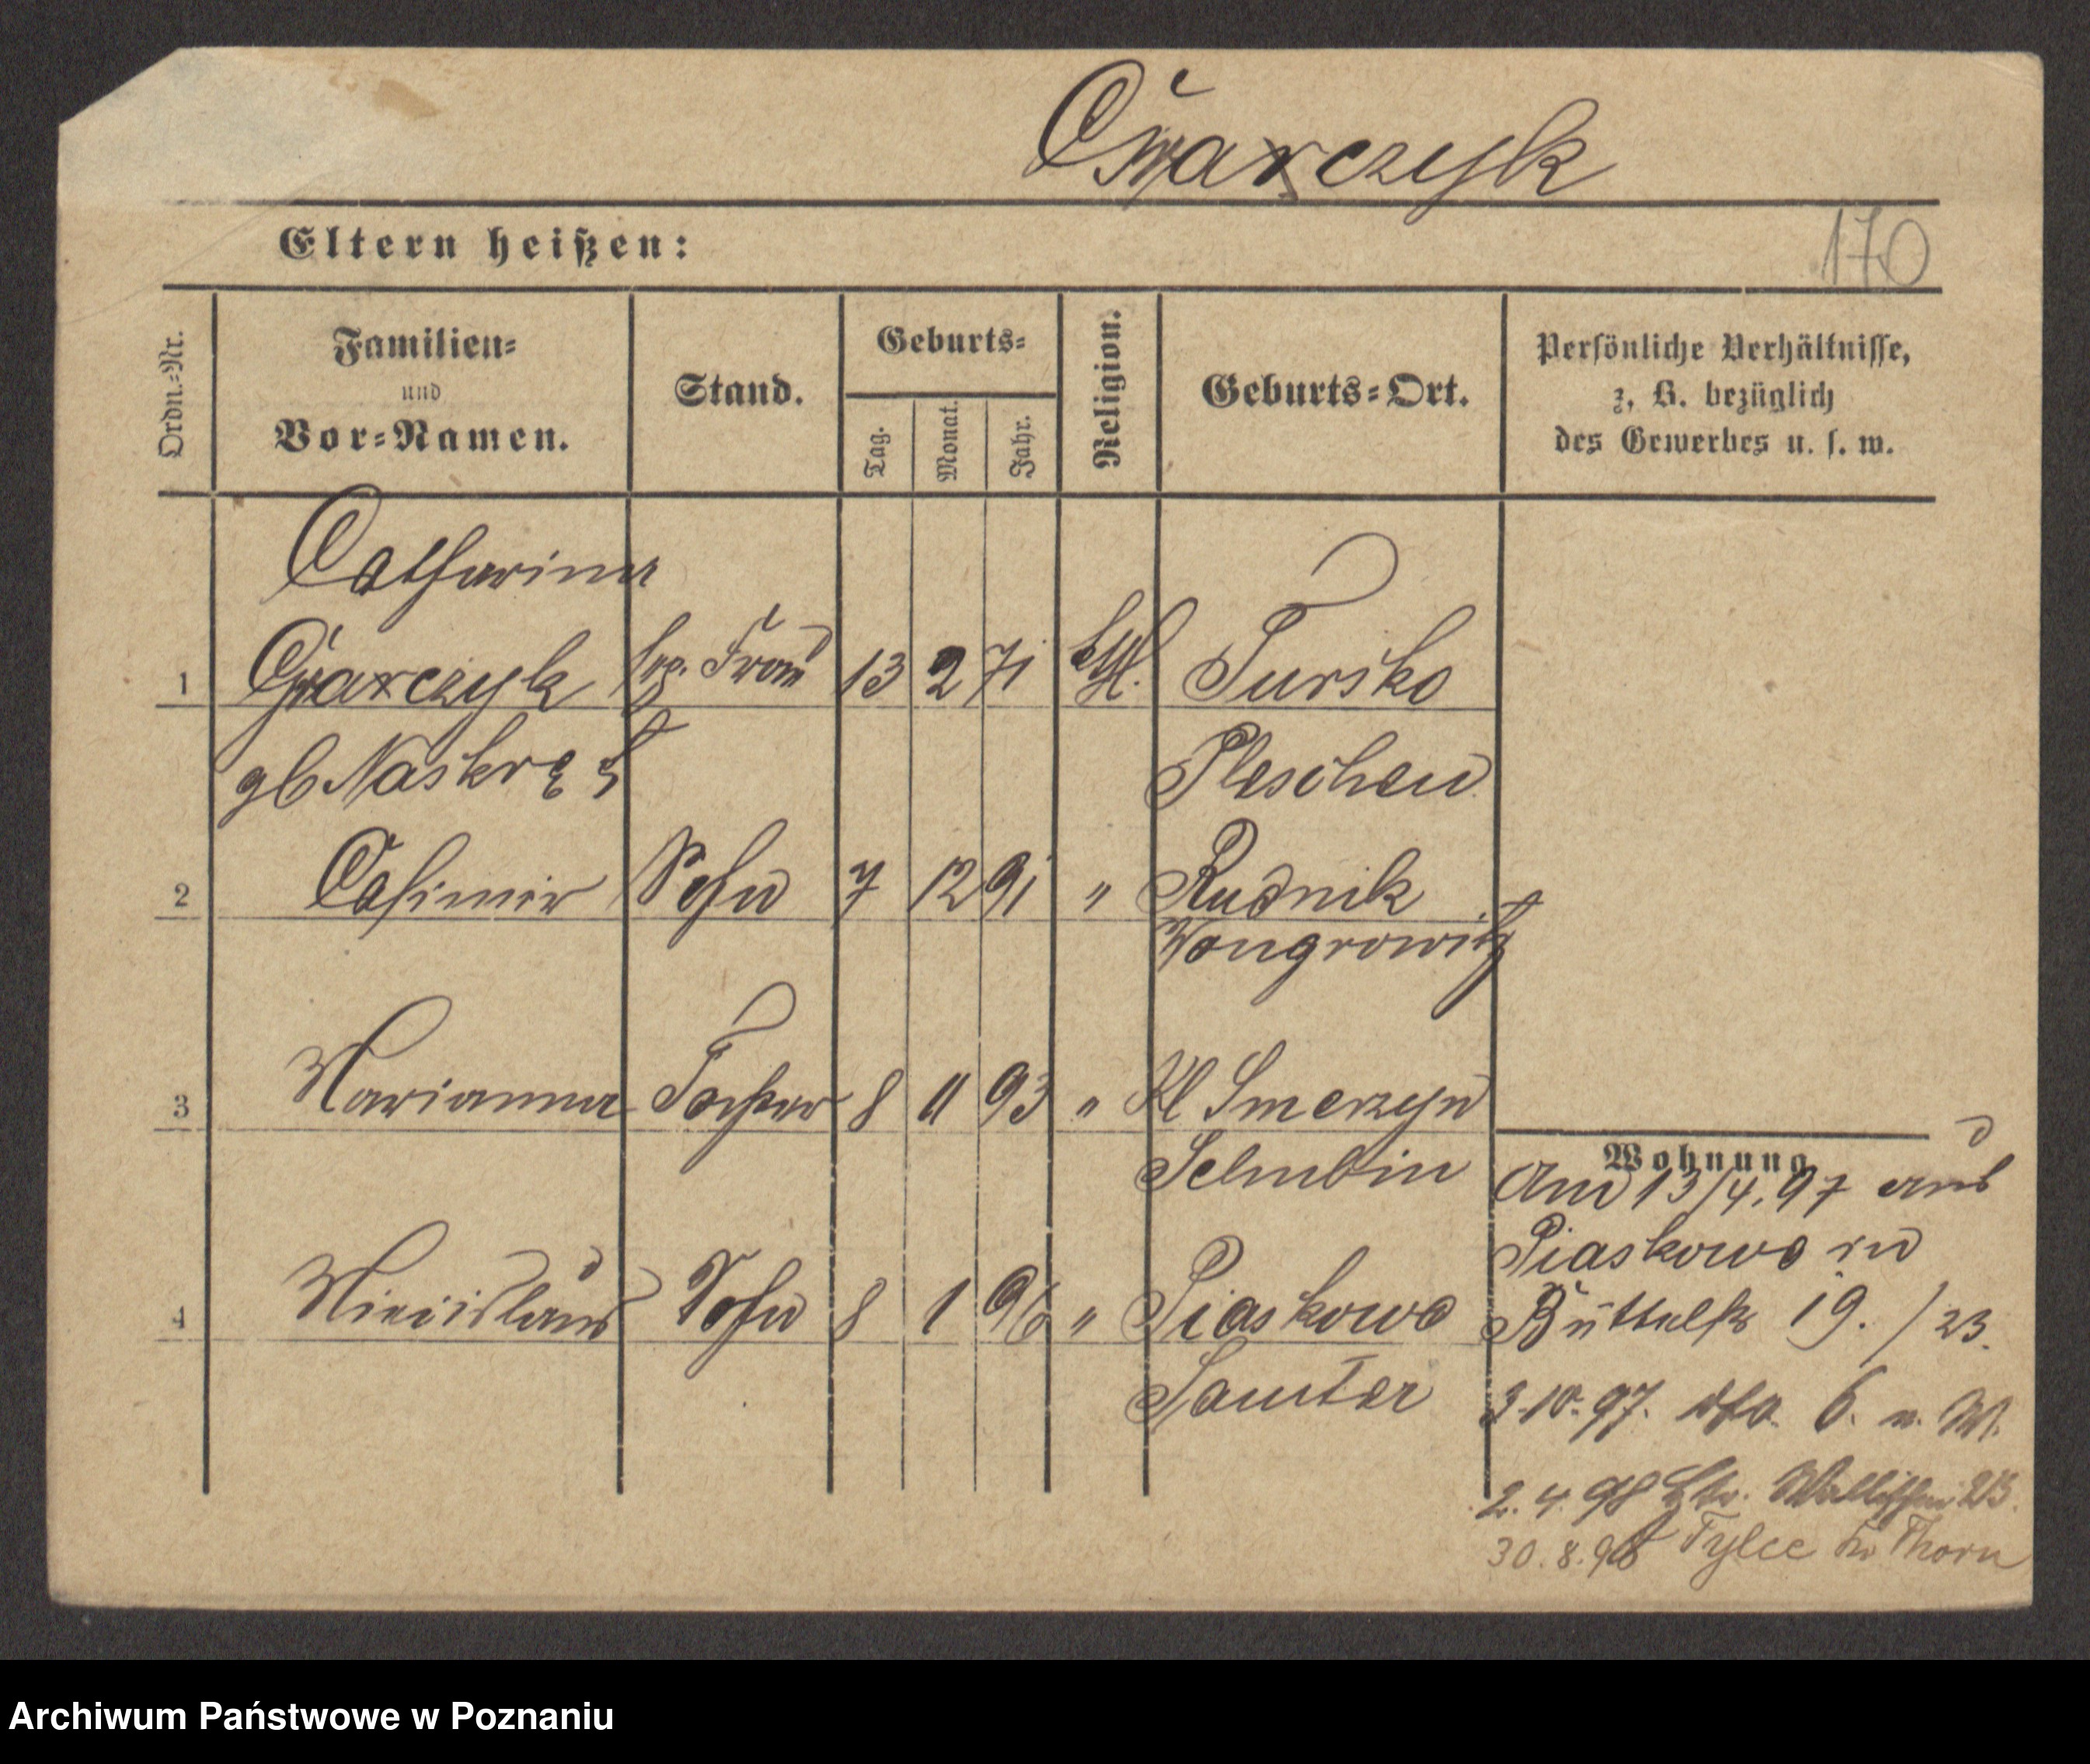 Eltern heißen:
170
Ordn.=Nr.
Familien=
und
Vor=Namen.
Stand.
Geburts=
Tag.
Monat.
Jahr.
Religion.
Geburts=Ort.
Persönliche Verhältnisse,
z. B. bezüglich
des Gewerbes u. s. w.
Catharina
1 Frau 13 2 71 Kth. Tursko
gb Naskręt
Pleschen
2 Casimir Sohn 7 12 91 " Rudnik
Wongrowitz
3 Marianna Tochter 8 11 93 " Kl Smerzyn
Schubin
Wohnung
Am 13/4. 97 aus
4 Miecislaus Sohn 8 1 96 " Piaskowo
Samter
Piaskowo in
19. / 23.
3.10.97. 6. n. W.
2. 4. 98 Wallischei
30. 8. 98 Thorn
Archiwum Państwowe w Poznaniu